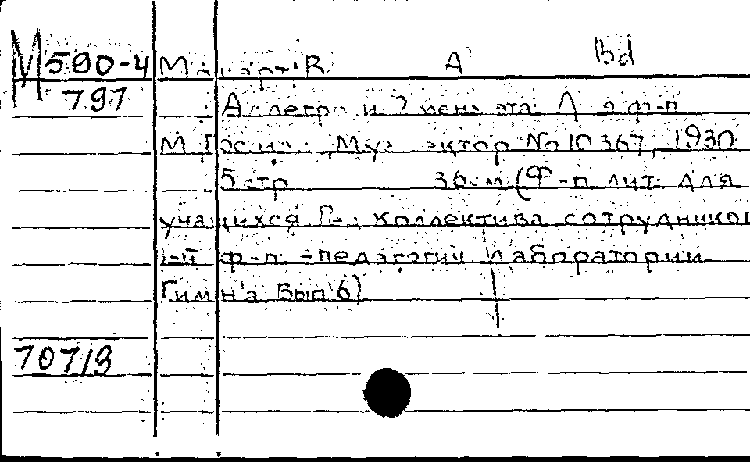 М500-4 В. А. Bd
797 Аллегро и 2 менуэта Для ф-п
М. Муз сектор № 10367, 1930
5 стр 36 см (Ф-п лит. для
учащихся коллектива сотрудников
1-й ф-п -педагогич лаборатории
Гимн'а Вып 6)
707/3